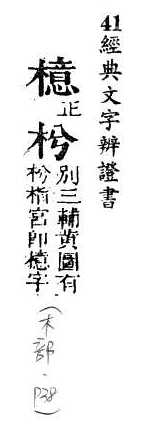 41經典文字辨證書
檍正
枍別三輔黃圖有
枍栺宮卽檍字
(木部.P38)